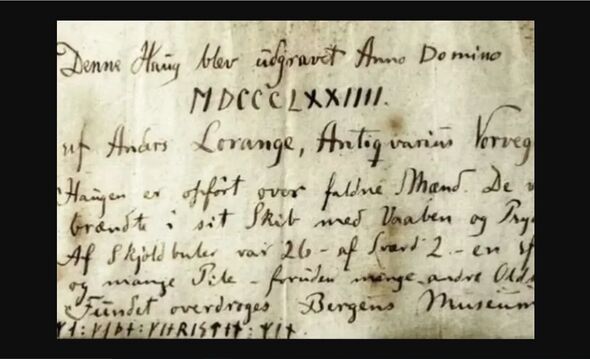 Denne Haug blev udgravet Anno Domino
MDCCCLXXIIII.
af Anders Lorange, Antiqvarius Norveg
Haugen er opført over faldne Mænd. De
brændte i sit Skib med Vaaben og Pryd
Af Skjoldbuler var 26 - af Sværd 2. - en
og mange Pile - foruden mange andre Olds
Fundet overdroges Bergens Museum